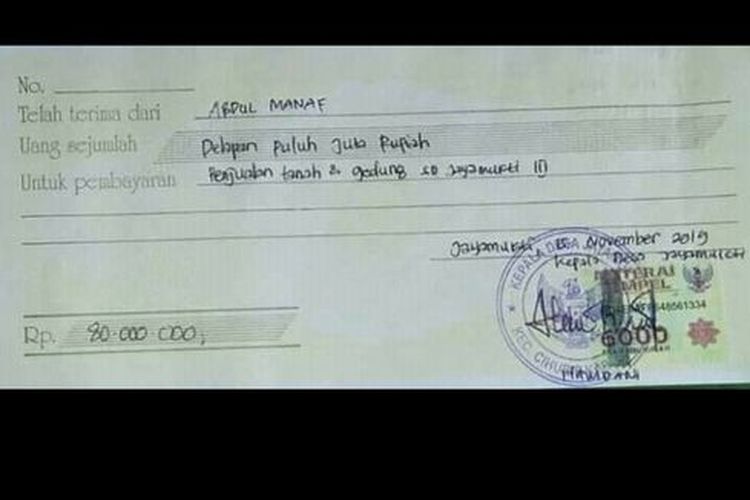 No.
Telah terima dari ABDUL MANAF
Uang sejumlah Delapan Puluh Juta Rupiah
Untuk pembayaran Penjualan tanah & gedung SD Jayamukti III
Jayamukti, November 2019
Kepala Desa Jayamukti
KEPALA DESA
METERAI
TEMPEL
648561334
6000
KEC. CIHUR
HAMDANI
Rp. 80.000.000,